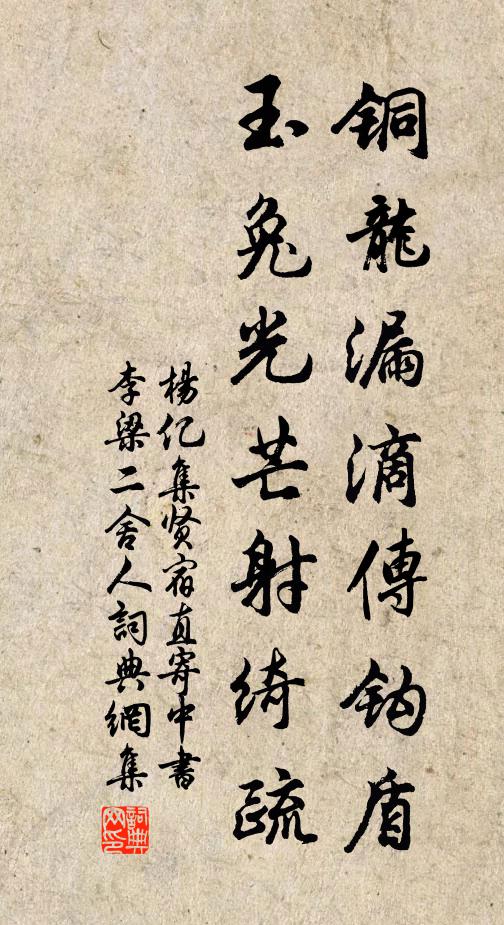 铜龍漏滴傳鈎盾
玉兔光芒射绮疏
楊亿集贤宿直寄中書
李梁二舍人詞典網集
詞典网印